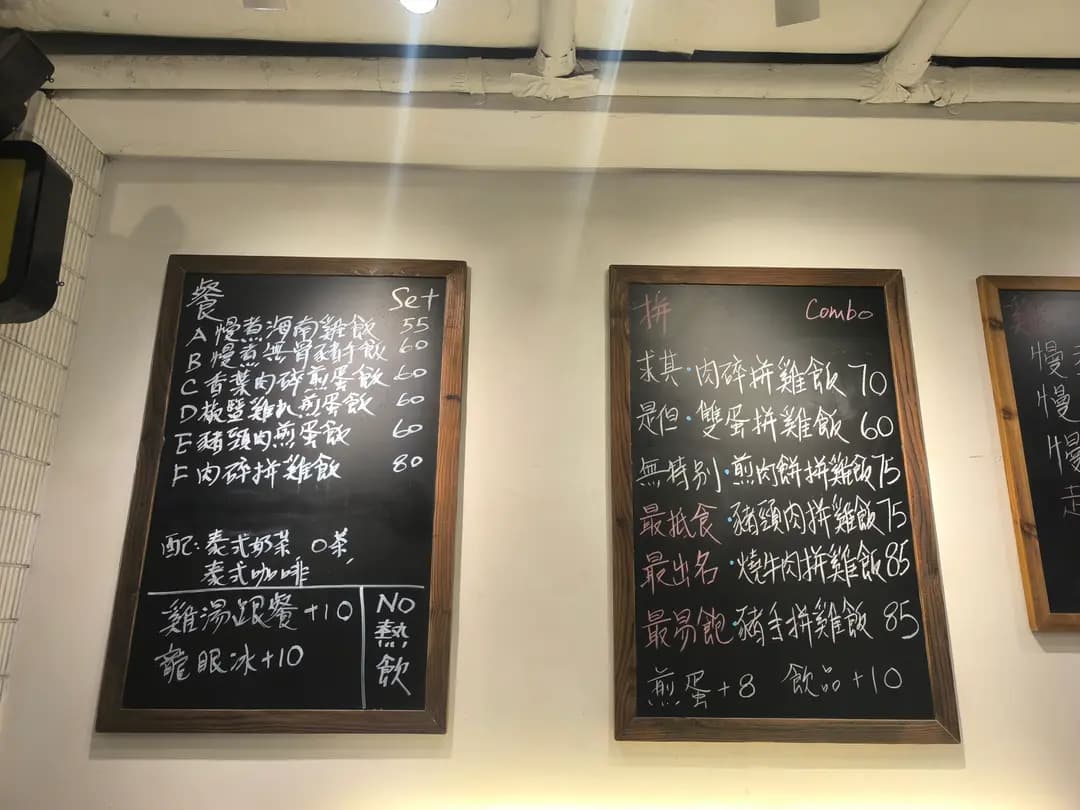 餐 Set
A 慢煮海南雞飯 55
B 慢煮無骨豬手飯 60
C 香葉肉碎煎蛋飯 60
D 椒鹽雞扒煎蛋飯 60
E 豬頸肉煎蛋飯 60
F 肉碎拼雞飯 80
配: 泰式奶茶 O茶,
泰式咖啡
雞湯跟餐 +10
龍眼冰 +10
NO
熱
飲
拼 Combo
求其·肉碎拼雞飯 70
是但·雙蛋拼雞飯 60
無特別·煎肉餅拼雞飯 75
最抵食·豬頸肉拼雞飯 75
最出名·燒牛肉拼雞飯 85
最易飽·豬手拼雞飯 85
煎蛋 +8 飲品 +10
慢
慢
慢
走